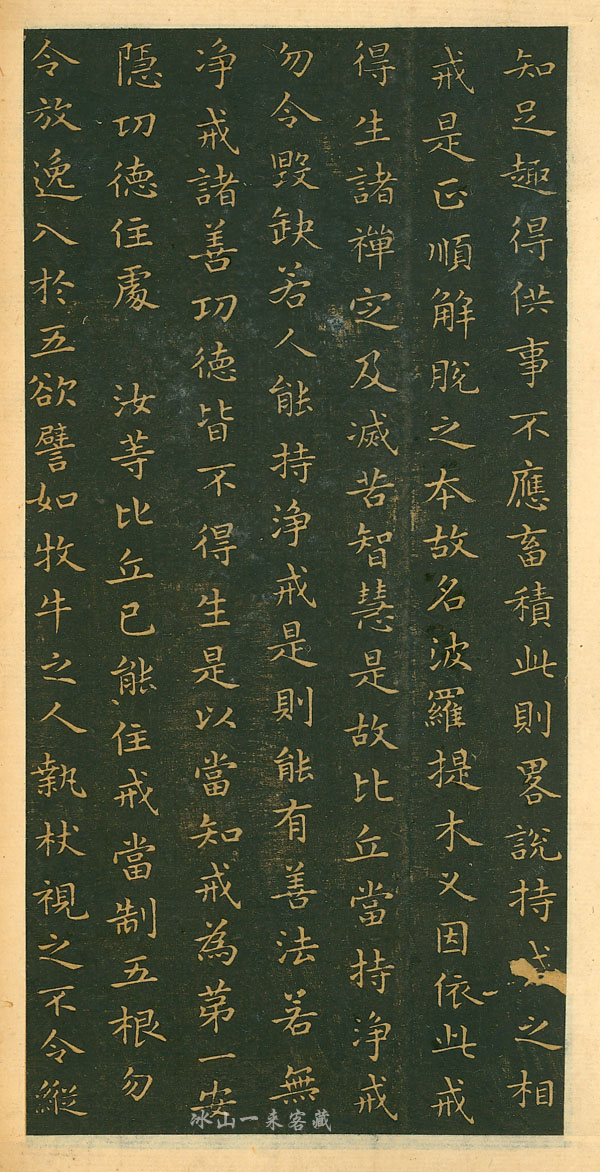 知足趣得供事不應畜積此則畧說持戒之相
戒是正順解脫之本故名波羅提木叉因依此戒
得生諸禪定及滅苦智慧是故比丘當持淨戒
勿令毀缺若人能持淨戒是則能有善法若無
淨戒諸善功德皆不得生是以當知戒為苐一安
隱功德住處　汝等比丘已能住戒當制五根勿
令放逸入於五欲譬如牧牛之人執杖視之不令縱
冰山一来客藏